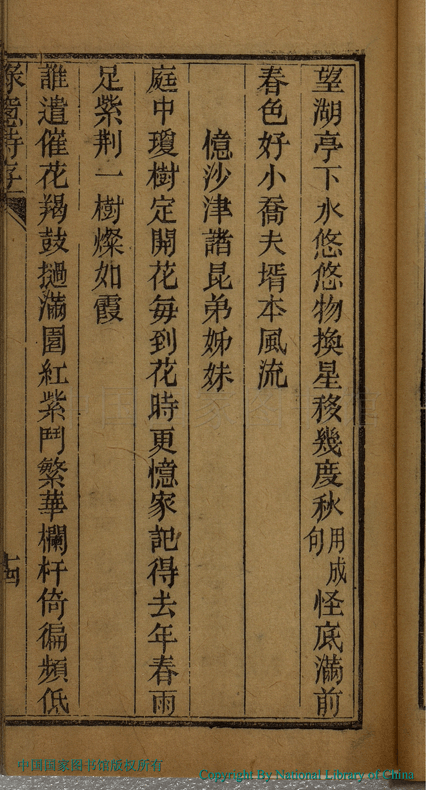 望湖亭下水悠悠物換星移幾度秋用成句怪底滿前
春色好小喬夫壻本風流
憶沙津諸昆弟姊妹
庭中瓊樹定開花每到花時更憶家記得去年春雨
足紫荆一樹燦如霞
誰遣催花羯鼓撾滿園紅紫鬥繁華欄杆倚徧頻低
十四
中国国家图书馆版权所有
Copyright By National Library of China